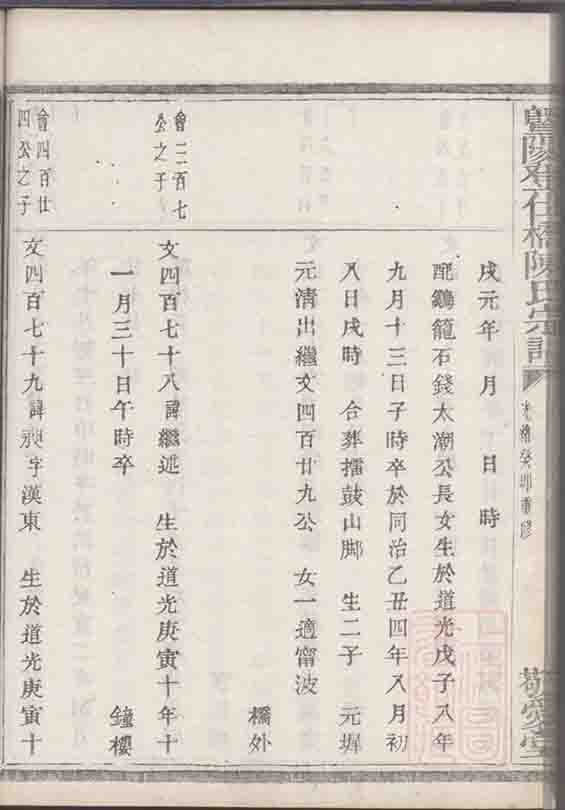 暨陽孝仁橋陳氏宗譜
光緒癸卯重修
敬愛堂
戌元年 月 日 時
配鷄籠石錢太潮公長女生於道光戊子八年
九月十三日子時卒於同治乙丑四年八月初
八日戌時 合葬擂鼓山脚 生二子 元墀
元清出繼文四百廿九公 女一適甯波
橋外
會三百七
公之子
文四百七十八諱繼述 生於道光庚寅十年十
一月三十日午時卒 鐘樓
會四百廿
四公之子
文四百七十九諱 字漢東 生於道光庚寅十